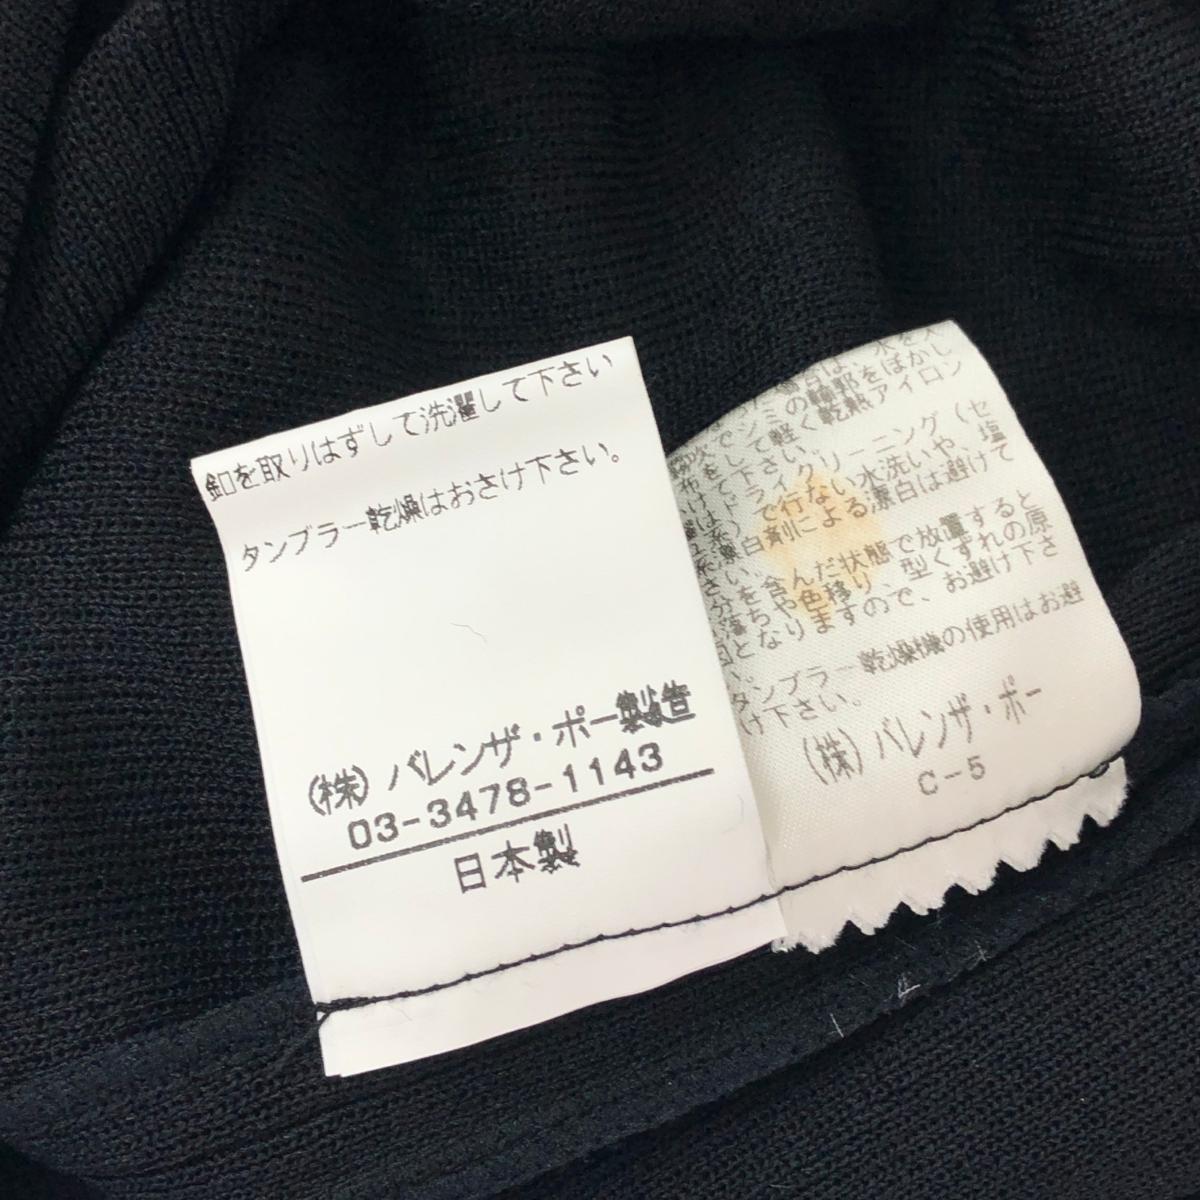 釦を取りはずして洗濯して下さい
タンブラー乾燥はおさけ下さい。
(株)バレンザ・ポー製造
03-3478-1143
日本製
シミの輪郭をぼかし
して軽く乾熱アイロン
をして下さい。
ドライクリーニング(セ
で行ない水洗いや、塩
素漂白剤による漂白は避けて
さい。
分を含んだ状態で放置すると
落ちや色移り、型くずれの原
因となりますので、お避け下さ
い。
タンブラー乾燥機の使用はお避
け下さい。
(株)バレンザ・ポー
C-5